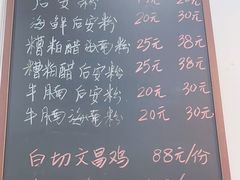 后安粉 15元 20元
海鲜后安粉 20元 30元
糟粕醋海南粉 25元 38元
糟粕醋后安粉 25元 38元
牛腩后安粉 20元 30元
牛腩海南粉 20元 30元
白切文昌鸡 88元/份